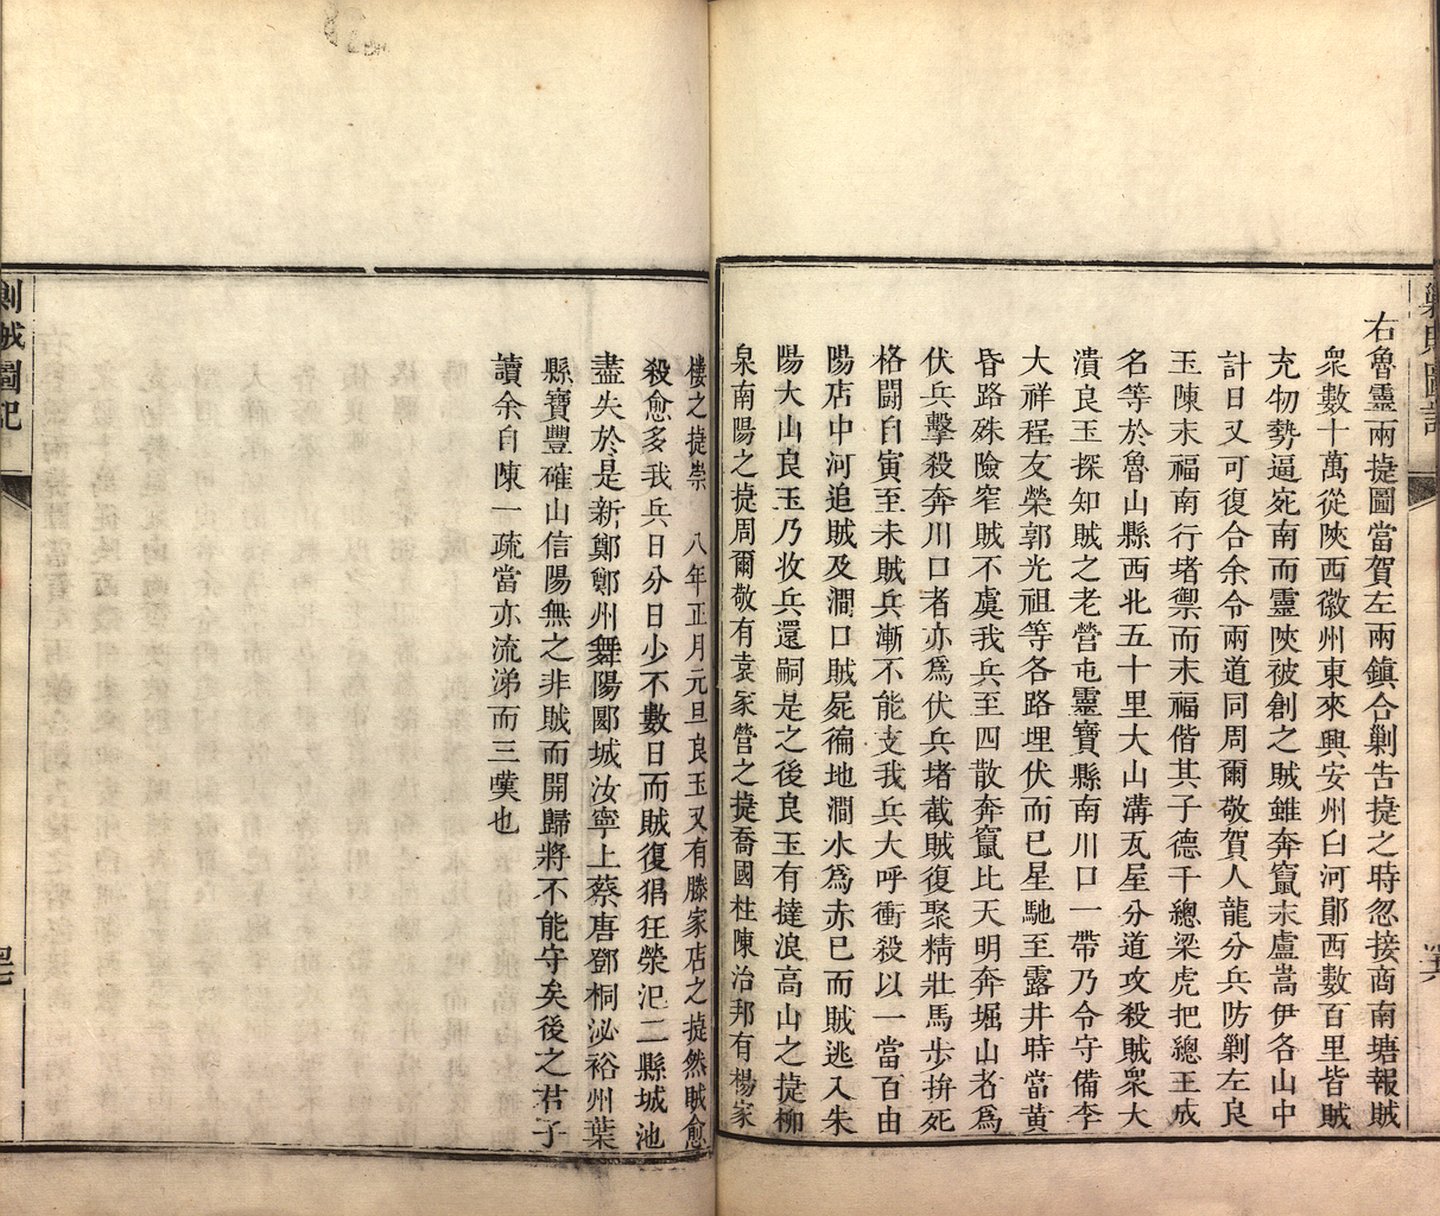 右魯靈兩捷圖當賀左兩鎮合剿告捷之時忽接商南塘報賊
衆數十萬從陝西徽州東來興安州白河鄖西數百里皆賊
充牣勢逼宛南而靈陝被創之賊雖奔竄末盧嵩伊各山中
計日又可復合余令兩道同周爾敬賀人龍分兵防剿左良
玉陳末福南行堵禦而末福偕其子德千總梁虎把總王成
名等於魯山縣西北五十里大山溝瓦屋分道攻殺賊衆大
潰良玉探知賊之老營屯靈寶縣南川口一帶乃令守備李
大祥程友榮郭光祖等各路埋伏而已星馳至露井時當黄
昏路殊險窄賊不虞我兵至四散奔竄比天明奔堀山者爲
伏兵擊殺奔川口者亦爲伏兵堵截賊復聚精壯馬步拚死
格鬬自寅至未賊兵漸不能支我兵大呼衝殺以一當百由
陽店中河追賊及澗口賊屍徧地澗水爲赤已而賊逃入朱
陽大山良玉乃收兵還嗣是之後良玉有撻浪高山之捷柳
泉南陽之捷周爾敬有袁家營之捷喬國柱陳治邦有楊家
樓之捷崇　八年正月元旦良玉又有滕家店之捷然賊愈
殺愈多我兵日分日少不數日而賊復猖狂滎汜二縣城池
盡失於是新鄭鄭州舞陽郾城汝寧上蔡唐鄧桐泌裕州葉
縣寶豐確山信陽無之非賊而開歸將不能守矣後之君子
讀余自陳一疏當亦流涕而三嘆也
剿賊圖記